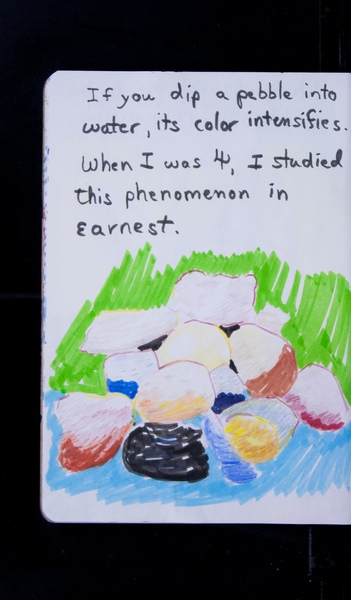 If you dip a pebble into
water, its color intensifies.
When I was 4, I studied
this phenomenon in
earnest.